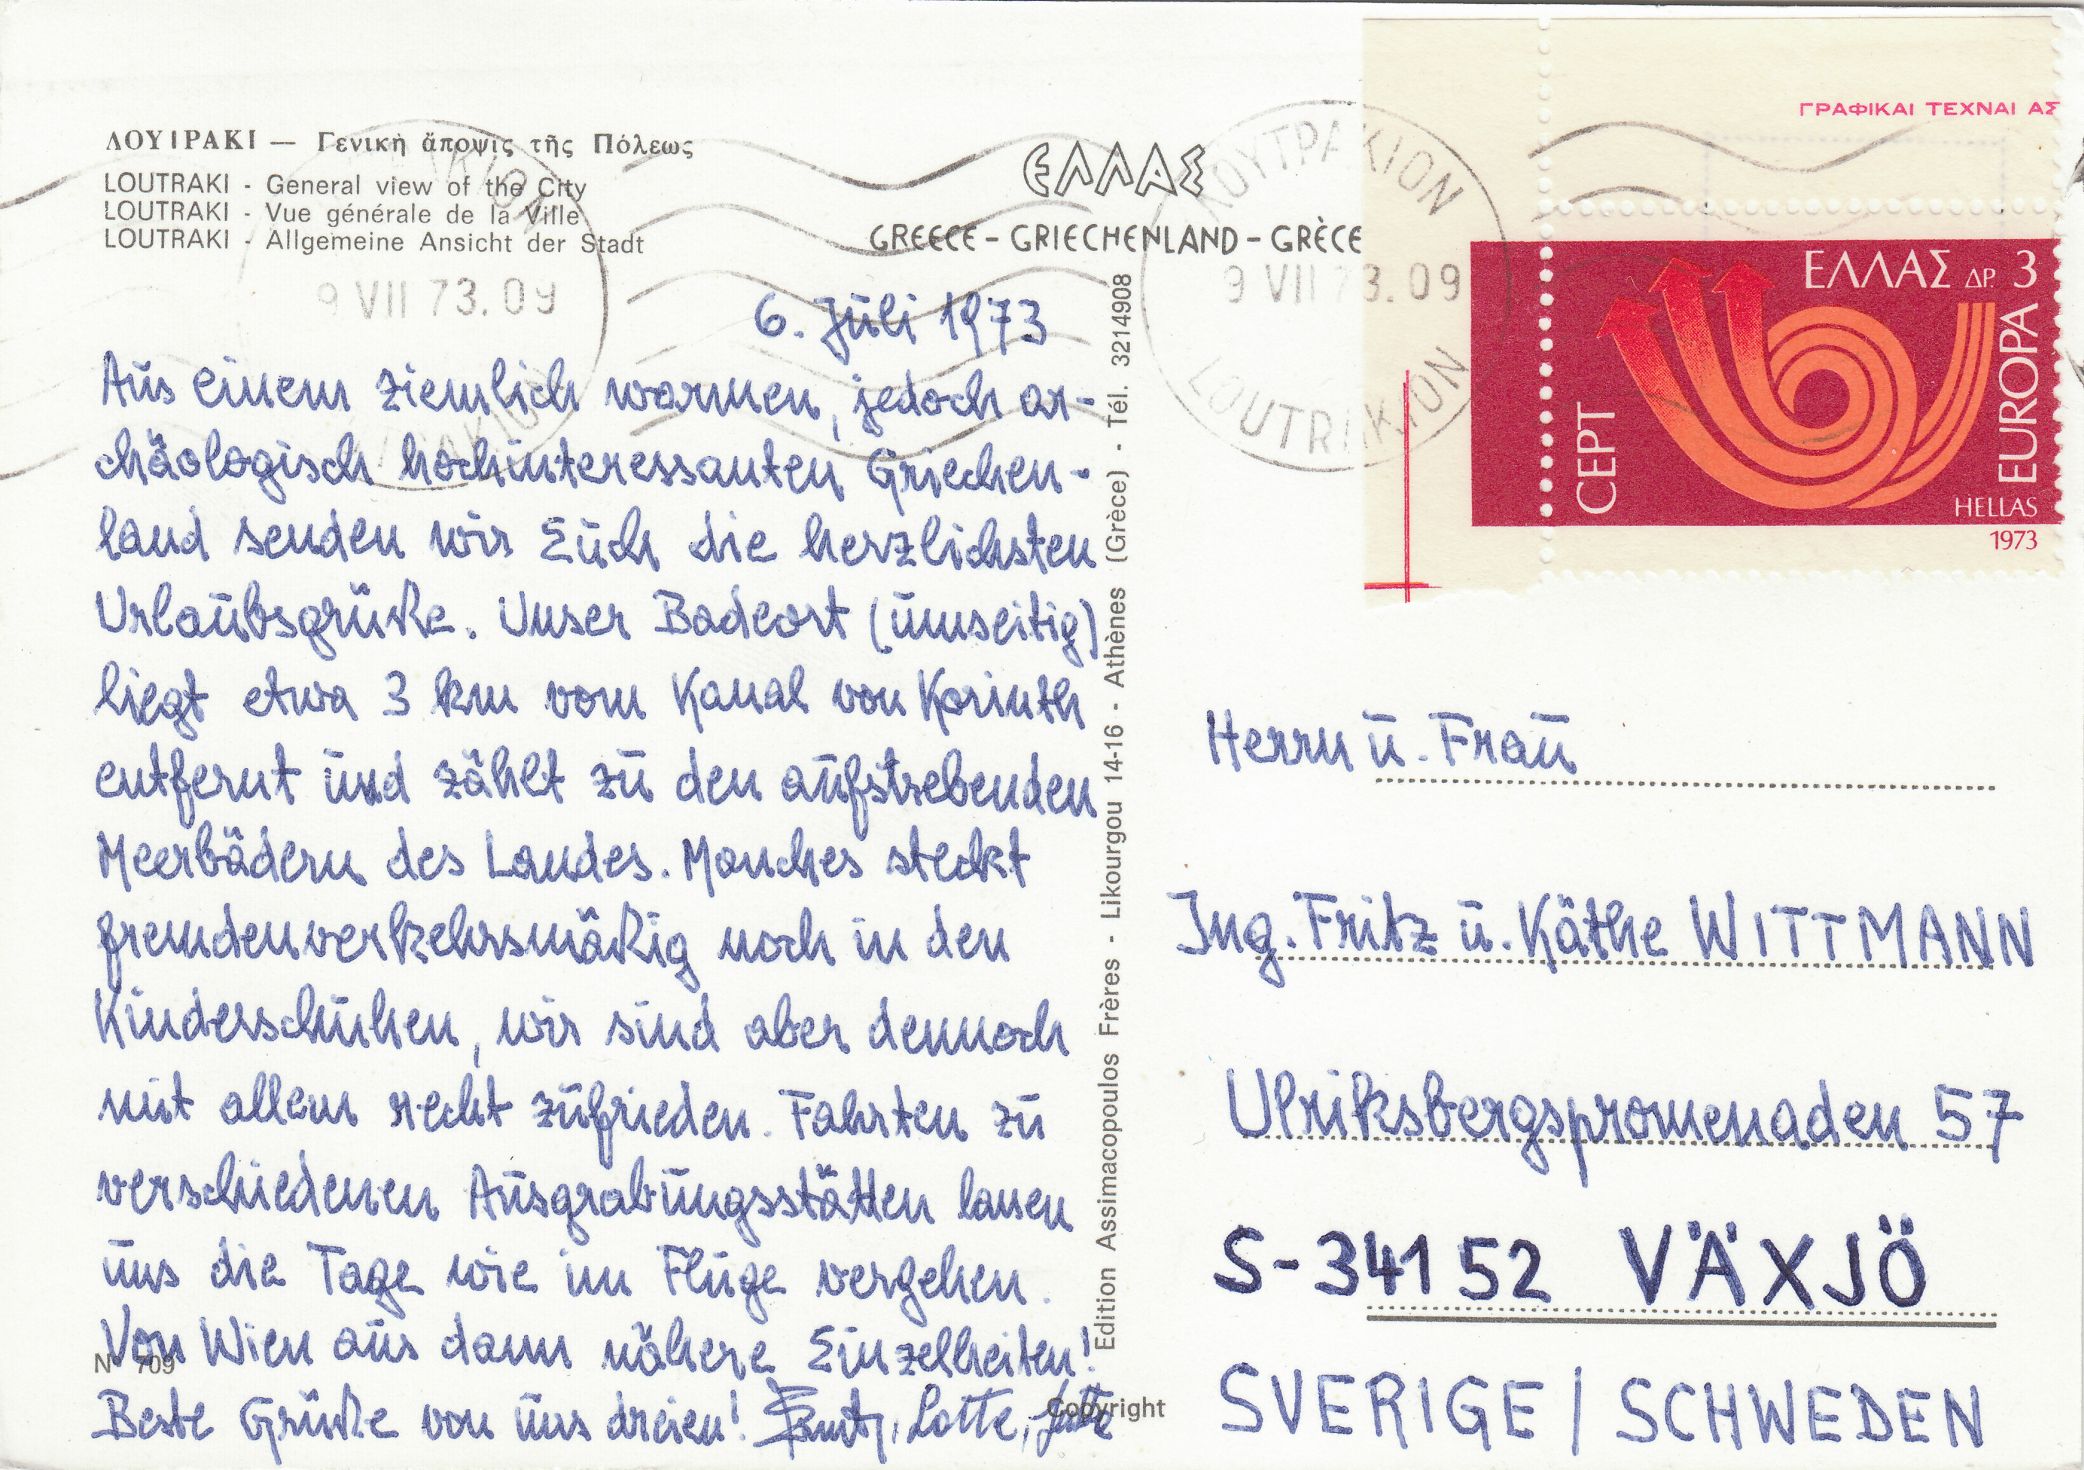 ΛΟΥΤΡΑΚΙ — Γενικὴ ἄποψις τῆς Πόλεως
LOUTRAKI - General view of the City
LOUTRAKI - Vue générale de la Ville
LOUTRAKI - Allgemeine Ansicht der Stadt
ΕΛΛΑΣ
GREECE - GRIECHENLAND - GRÈCE
ΛΟΥΤΡΑΚΙΟΝ
9 VII 73.09
LOUTRAKION
9 VII 73.09
ΓΡΑΦΙΚΑΙ ΤΕΧΝΑΙ ΑΣ
ΕΛΛΑΣ ΔΡ. 3
CEPT
EUROPA
HELLAS
1973
6. Juli 1973
Aus einem ziemlich warmen, jedoch ar-
chäologisch hochinteressanten Griechen-
land senden wir Euch die herzlichsten
Urlaubsgrüße. Unser Badeort (umseitig)
liegt etwa 3 km vom Kanal von Korinth
entfernt und zählt zu den aufstrebenden
Meerbädern des Landes. Manches steckt
fremdenverkehrsmäßig noch in den
Kinderschuhen, wir sind aber dennoch
mit allem recht zufrieden. Fahrten zu
verschiedenen Ausgrabungsstätten lassen
uns die Tage wie im Fluge vergehen.
Von Wien aus dann nähere Einzelheiten!
Beste Grüße von uns dreien! Lotte,
N° 709
Copyright
Edition Assimacopoulos Frères - Likourgou 14-16 - Athènes (Grèce) - Tél. 3214908
Herrn u. Frau
Ing. Fritz u. Käthe WITTMANN
Ulriksbergspromenaden 57
S-34152 VÄXJÖ
SVERIGE / SCHWEDEN